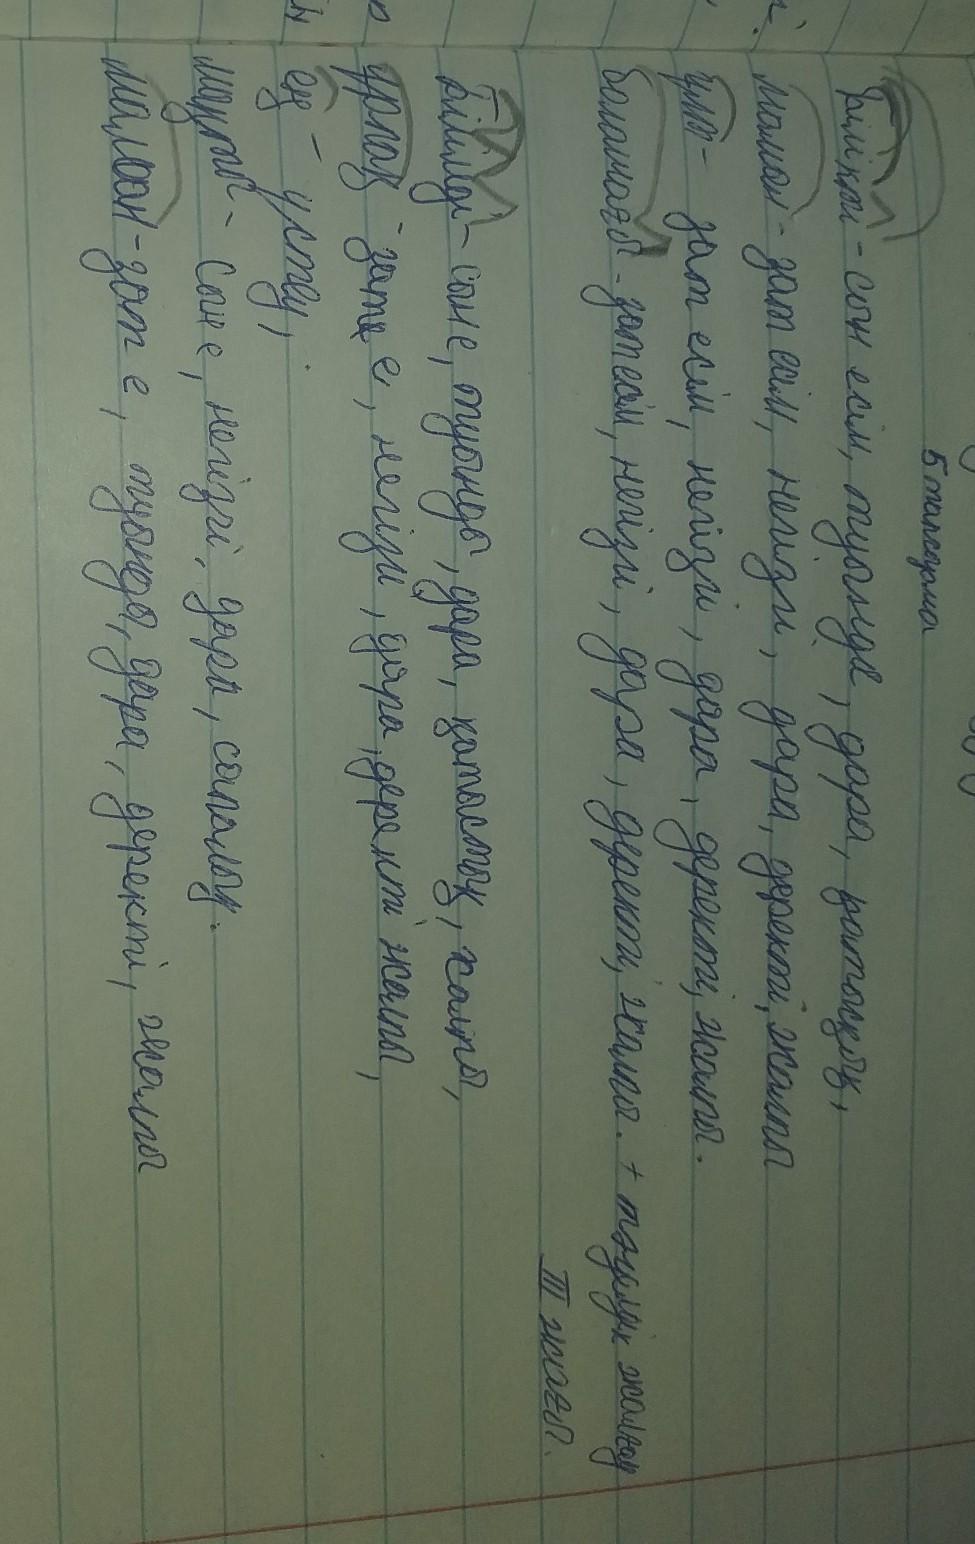 5 тапсырма
Білікті - сын есім, туынды, дара, қатыстық,
маман - зат есім, негізгі, дара, деректі, жалпы
ұлт - зат есім, негізгі, дара, деректі, жалпы.
- зат есім, негізгі, дара, деректі, жалпы. + тәуелдік жалғау
III жағы.
Білімді - сын е, туынды, дара, қатыстық, жалпы,
ұрпақ - зат е, негізгі, дара, деректі жалпы,
ең - үстеу,
мұғ - сын е, негізгі, дара, сапалық.
- зат е, туынды, дара, деректі, жалпы